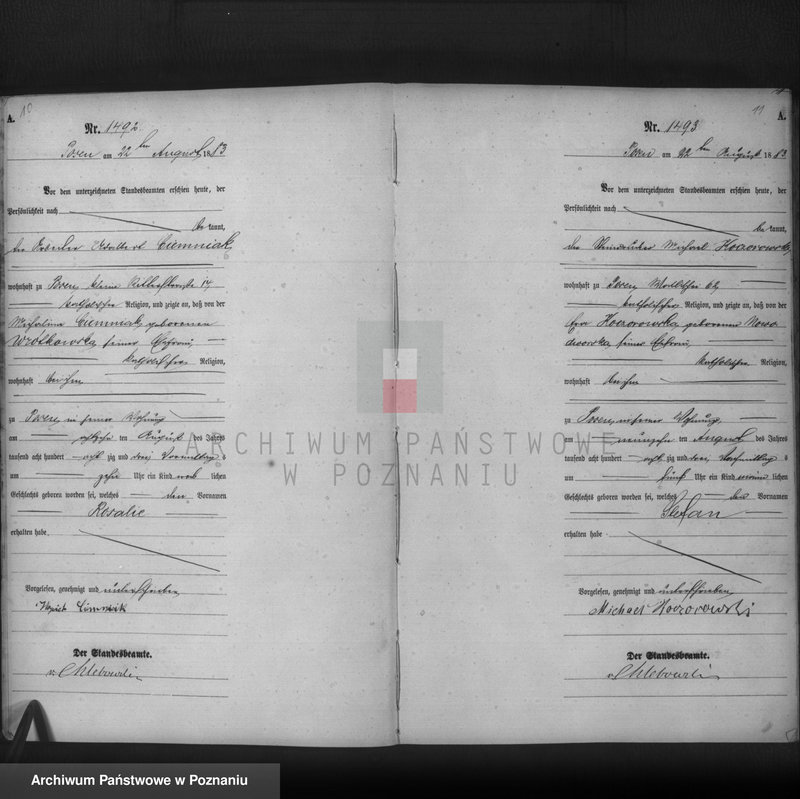 A. 10
Nr. 1492
Posen am 22ten August 1883
Vor dem unterzeichneten Standesbeamten erschien heute, der
Persönlichkeit nach
be kannt,
der Adalbert Ciemniak
wohnhaft zu Posen kleine Ritterstraße 17
katholischer Religion, und zeigte an, daß von der
Michalina Ciemniak geborenen
Wrotkowska seiner Ehefrau
katholischer Religion,
wohnhaft bei ihm
zu Posen in seiner Wohnung
am achtzehnten August des Jahres
tausend acht hundert acht zig und drei Vormittags
um zehn Uhr ein Kind weib lichen
Geschlechts geboren worden sei, welches den Vornamen
Rosalie
erhalten habe
Vorgelesen, genehmigt und unterschrieben
Ciemniak
Der Standesbeamte.
v. Chlebowski
11 A.
Nr. 1493
Posen am 22ten August 1883
Vor dem unterzeichneten Standesbeamten erschien heute, der
Persönlichkeit nach
be kannt,
der Michael Hoczorowski
wohnhaft zu Posen 62
katholischer Religion, und zeigte an, daß von der
Eva Hoczorowska geborenen Nowo
dworska seiner Ehefrau
katholischer Religion,
wohnhaft bei ihm
zu Posen in seiner Wohnung
am neunzehnten August des Jahres
tausend acht hundert acht zig und drei Nachmittags
um fünf Uhr ein Kind männ lichen
Geschlechts geboren worden sei, welches den Vornamen
Stefan
erhalten habe
Vorgelesen, genehmigt und unterschrieben
Michael Hoczorowski
Der Standesbeamte.
v. Chlebowski
ARCHIWUM PAŃSTWOWE
W POZNANIU
Archiwum Państwowe w Poznaniu